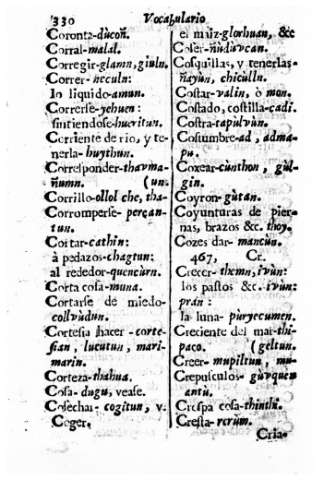 330 Vocabulario
Coronta-ducoñ.
Corral-malal.
Corregir-glamn, giuln.
Correr-
lo liquido-amun.
Correrse-yehuen:
sintiendose-huevitun.
Corriente de rio, y te-
nerla-huythun.
Corresponder-thavma-
ñumn. (un.
Corrillo-ollol che, tha-
Corromperse-perçan-
tun.
Cortar-cathün:
à pedazos-chagtun:
al rededor-quencùrn.
Corta cosa-muna.
Cortarse de miedo-
collvùdun.
Cortesia hacer-corte-
sian, lucutun, mari-
marin.
Corteza-thahua.
Cosa-dugu, vease.
Cosechar-cogitun, v.
Coger.
el maiz-glorhuan, &c
Coser-ñudùvcan.
Cosquillas, y tenerlas-
ñayùn, chicülln.
Costar-valin, ò mon.
Costado, costilla-cadi.
Costra-tapùlvùn.
Costumbre-ad, adma-
pu.
Coxear-cùnthon, gùl-
gin.
Coyron-gùtan.
Coyunturas de pier-
nas, brazos &c. thoy.
Cozes dar-mancùn.
467, Cr.
Crecer-themn, ivùn:
los pastos &c. ivùn:
pràn:
la luna-pùrycumen.
Creciente del mar-thi-
paco. (geltun.
Creer-mupiltun, mu-
Crepusculos-gùvquen
antù.
Crespa cosa-thinthi.
Cresta-rerùm.
Cria-